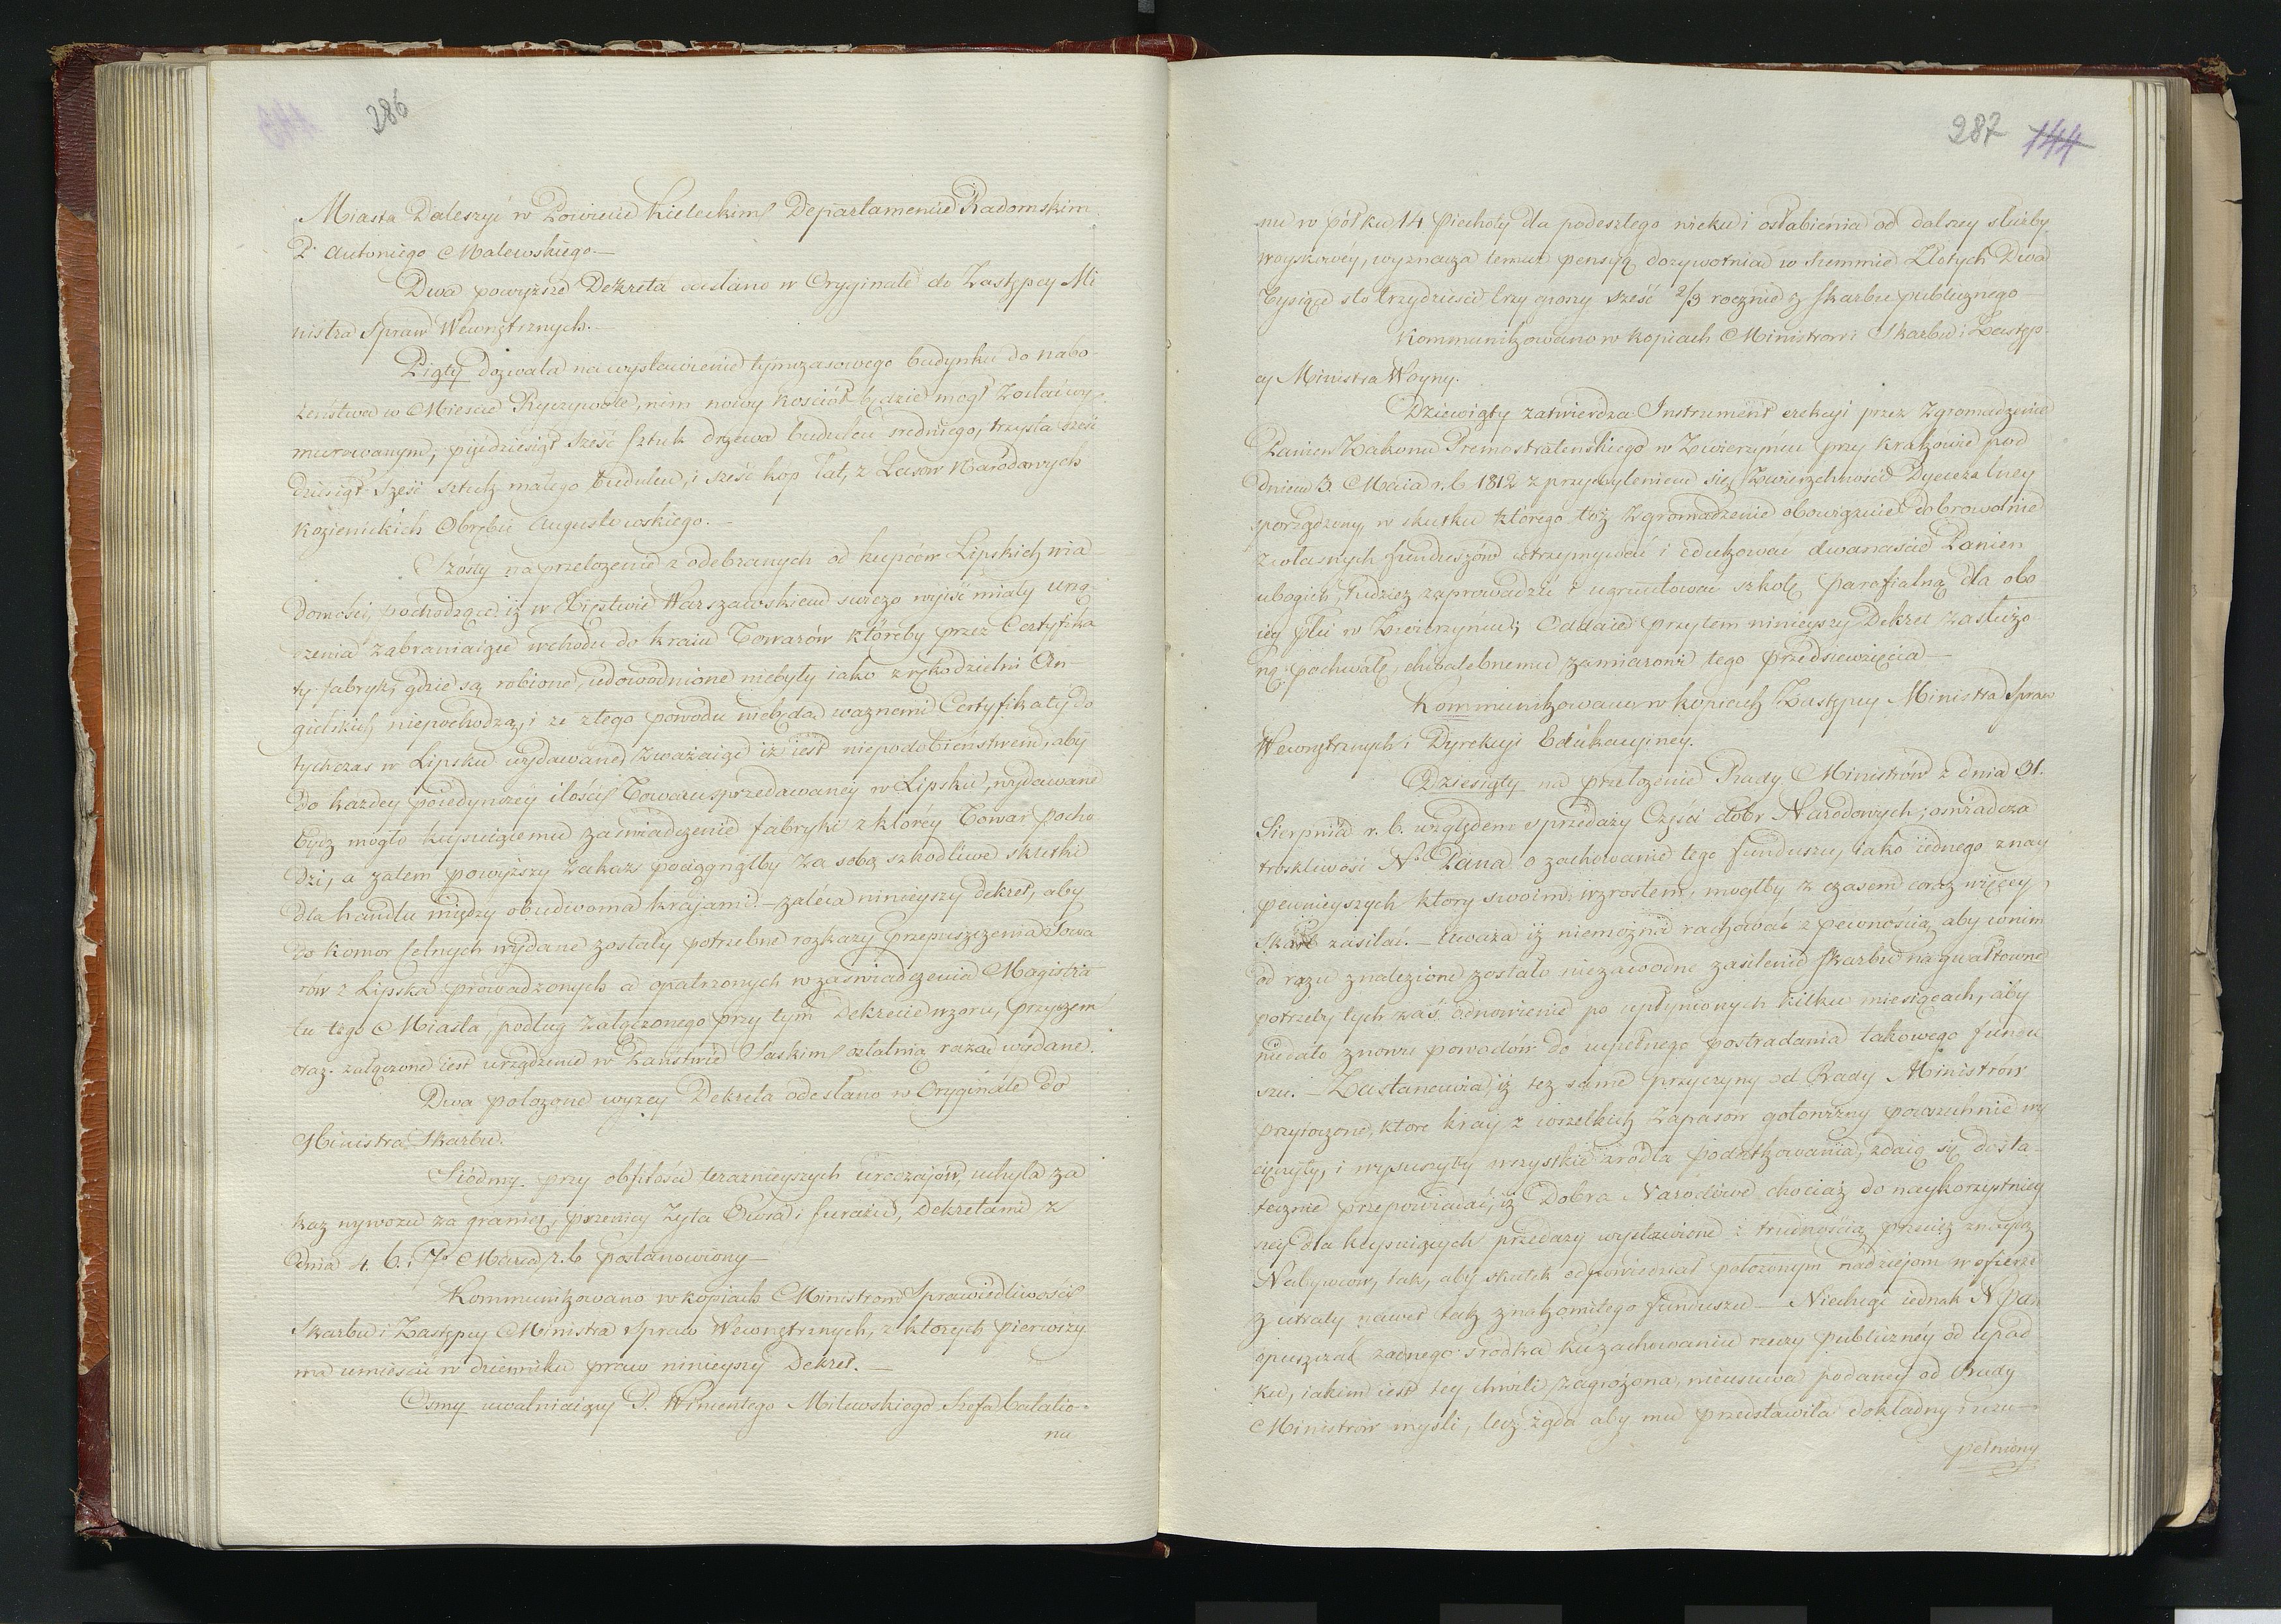 286
Miasta Daleszyć w Powiecie Kieleckim Departamencie Radomskim
P. Antoniego Malewskiego.—
Dwa powyższe Dekreta odesłano w Oryginale do Zastępcy Mi
nistra Spraw Wewnętrznych.—
Piąty dozwala na wystawienie tymczasowego budynku do nabo-
żeństwa w Mieście Ryczywole, nim nowy kościół będzie mógł zostać wy-
murowanym, pięćdziesiąt sześć sztuk drzewa budulcu średniego, trzysta sześć
dziesiąt sześć sztuk małego budulcu, i sześć kop łat, z Lasow Narodowych
Kozienickich Obrębu Augustowskiego.—
Szósty na przełożenie z odebranych od kupców Lipskich wia
domości pochodzące iż w Xięstwie Warszawskiem swieżo wyiść miały urzą-
dzenia zabraniaiące wchodu do kraiu Towarów któreby przez Certyfika
ty fabryk, gdzie są robione, udowodnione niebyły iako z rękodzielni An
gielskich niepochodzą, i że z tego powodu niebędą ważnemi Certyfikaty do
tychczas w Lipsku wydawane, zważaiąc iż iest niepodobieństwem, aby
do każdey poiedynczey ilości Towaru sprzedawaney w Lipsku, wydawane
bydź mogło kupuiącemu zaświadczenie fabryki z któréy Towar pocho
dzi, a zatem powyższy zakaz pociągnąłby za sobą szkodliwe skutki
dla handlu między obudwoma krajami.— zaléca ninieyszy dekret, aby
do komor celnych wydane zostały potrzebne rozkazy przepuszczenia Towa
rów z Lipska prowadzonych a opatrzonych w zaświadczenia Magistra
tu tego Miasta, podług załączonego przy tym Dekrecie wzoru, przyczem
oraz załączone iest urządzenie w Państwie Saskim ostatnią razą wydane.
Dwa położone wyżey Dekreta odesłano w Oryginale do
Ministra Skarbu.
Siódmy przy obfitości teraznieyszych urodzajów, uchyla za
kaz wywozu za granicę, pszenicy żyta Owsa i furażu, Dekretami z
dnia 4. 6. i 7o Marca r. b postanowiony—
Kommunikowano w kopiach Ministrom Sprawiedliwości
Skarbu i Zastępcy Ministra Spraw Wewnętrznych, z których pierwszy
ma umieścić w dzienniku praw ninieyszy Dekret.—
Osmy uwalniaiący P. Wincentego Milewskiego Szefa batalio-
nu
287 144
nu w półku 14 piechoty dla podeszłego wieku i osłabienia od dalszey służby
woyskowéy, wyznacza temuż pensyą dożywotnią w summie Złotych Dwa
tysiące sto trzydzieście trzy groszy sześć 2/3 rocznie z skarbu publicznego
Kommunikowano w kopiach Ministrowi Skarbu i Zastęp-
cy Ministra Woyny.
Dziewiąty zatwierdza Instrument erekcyi przez Zgromadzenie
Panien Zakonu Premonstrateńskiego w Zwierzyńcu przy Krakowie pod
dniem 3. Maia r. b 1812 z przychyleniem się Zwierzchności Dyecezalney
sporządzony, w skutku którego toż Zgromadzenie obowiązuie dobrowolnie
z własnych funduszów utrzymywać i edukować dwanaście Panien
ubogich, tudzież zaprowadzić i ugruntować szkołę parafialną dla obo
iey płci w Zwierzyńcu; Oddaie przytem ninieyszy Dekret zasłużo
ną pochwałę, chwalebnemu zamiarowi tego przedsiewzięcia—
Kommunikowano w kopiach Zastępcy Ministra Spraw
Wewnętrznych i Dyrekcyi Edukacyiney.
Dziesiąty na przełożenie Rady Ministrów z dnia 31.
Sierpnia r. b. względem sprzedaży Części dobr Narodowych; oświadcza
troskliwość N. Pana o zachowanie tego funduszu, iako iednego z nay
pewnieyszych który swoim wzrostem, mógłby z czasem coraz więcey
Skarb zasilać.— Uważa iż niemożna rachować z pewnością aby w nim
od razu znalezione zostało niezawodne zasilenie Skarbu na gwałtowne
potrzeby tych zaś odnowienie po upłynionych kilku miesiącach, aby
niedało znowu powodów do zupełnego postradania takowego fundu
szu.— Zastanawia, iż też same przyczyny od Rady Ministrów
przytoczone, które kray z wszelkich zapasów gotowizny powszechnie wy
cieńczyły, i wysuszyły wszystkie źródła podatkowania, zdaią się dosta-
tecznie przepowiadać, iż Dobra Narodowe chociaż do naykorzystniey
szey dla kupuiących przedaży wystawione z trudnością przecież znaydą
Nabywców, tak, aby skutek odpowiedział położonym nadzieiom w ofierze
z utraty nawet tak znakomitego funduszu— Niechcąc iednak N Pan
opuszczać żadnego środka ku zachowaniu rzeczy publicznéy od upad
ku, iakim iest tey chwili zagrożona, nieusuwa podaney od Rady
Ministrów myśli, lecz żąda aby mu przedstawiła dokładny i uzu-
pełniony